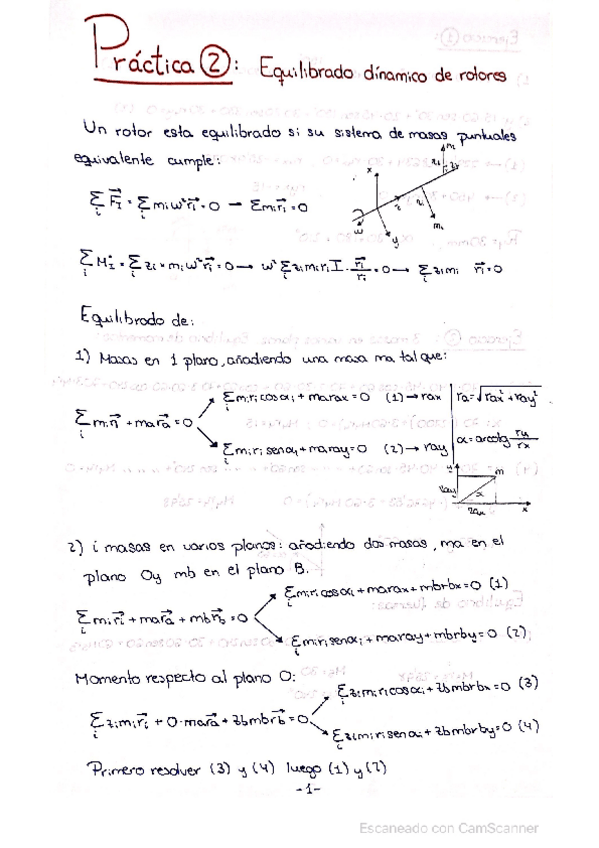 Práctica ②: Equilibrado dinámico de rotores
Un rotor esta equilibrado si su sistema de masas puntuales
equivalente cumple:
∑ᵢ F⃗I = ∑ᵢ miω²r⃗i = 0 → ∑miri = 0
∑ᵢ MI = ∑ᵢ zi × miω²r⃗i = 0 → ω² ∑zimiriI · r⃗i/ri = 0 → ∑ᵢ zimi r⃗i = 0
Equilibrado de:
1) Masas en 1 plano, añadiendo una masa ma tal que:
∑ᵢ miri + mara = 0
∑ᵢ miri cosαi + marax = 0 (1) → rax
∑ᵢ miri senαi + maray = 0 (2) → ray
ra = √rax² + ray²
α = arcotg
m
ray
α
rax
x
2) i masas en varios planos: añadiendo dos masas, ma en el
plano 0 y mb en el plano B.
∑ᵢ mir⃗i + mar⃗a + mbr⃗b = 0
∑ᵢ miri cosαi + marax + mbrbx = 0 (1)
∑ᵢ miri senαi + maray + mbrby = 0 (2)
Momento respecto al plano O:
∑ᵢ zimir⃗i + 0·mar⃗a + zbmbr⃗b = 0
∑ᵢ zimiri cosαi + zbmbrbx = 0 (3)
∑ᵢ zimiri senαi + zbmbrby = 0 (4)
Primero resolver (3) y (4) luego (1) y (2)
-1-
Escaneado con CamScanner